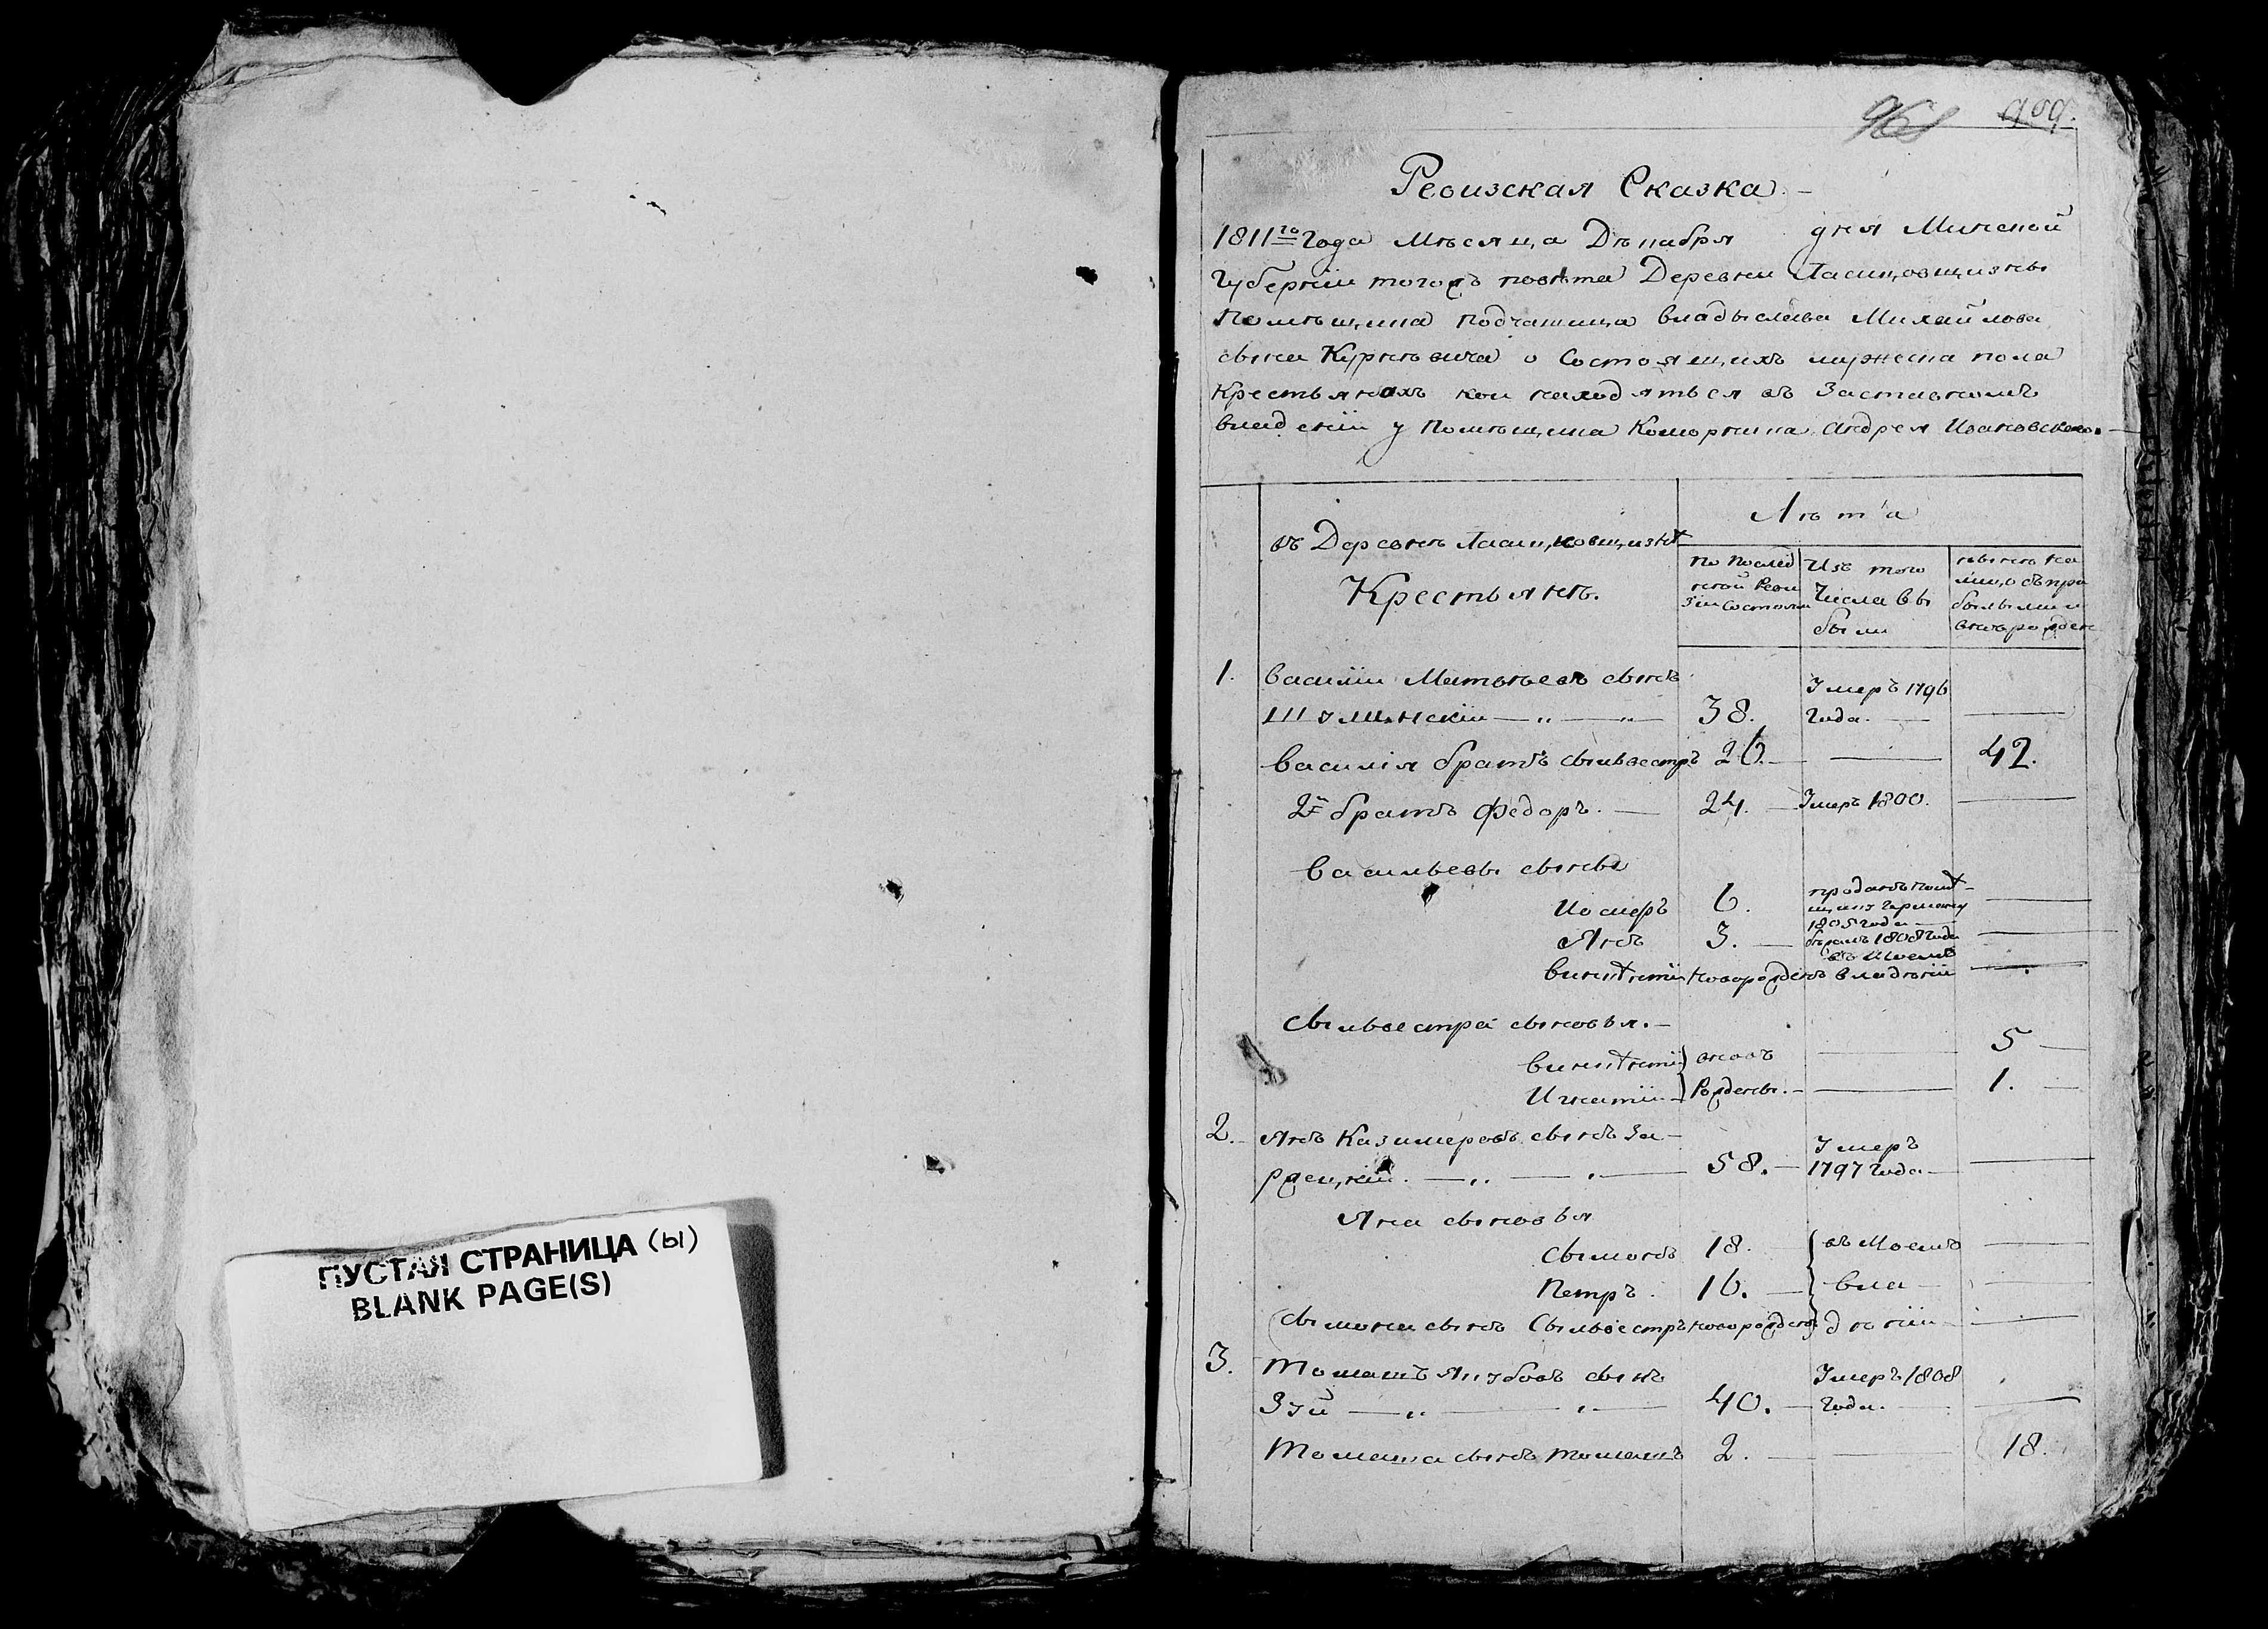 ПУСТАЯ СТРАНИЦА (Ы)
BLANK PAGE(S)
968 909.
Ревизская Сказка.
1811го Года Мѣсяца Дѣкабря дня Минской
Губерніи тогожъ повѣта Деревни
Помѣщика Подчашица Владыслава Михайлова
сына о Состоящихъ мужеска пола
Крестьянахъ кои находяться въ Заставномъ
владеніи у Помѣщика Коморника Андрея Ивановскаго.
Лѣта
въ Деревнѣ
Крестьянъ.
По послед
ней Реви
зіи состояли
Изъ того
Числа вы
были
нынѣ на
лицо съ при
былыми и
вновь рожден
1. Василіи Матвѣевъ сынъ Умеръ 1796
38. Года.
Василія братъ Сыльвестръ 26. 42.
2й братъ Федоръ. 24. Умеръ 1800.
Васильевы сыны
6. проданъ помѣ
щику
1805 Года
Янъ 3. бежалъ 1808 Года
въ Моемъ
Викѣнтіи новорожденъ владѣніи
Сыльвестра сыновья.
Викѣнтіи вновь 5
Игнатіи Рождены. 1.
2. Янъ Казимеровъ сынъ За- Умеръ
рецкіи. 58. 1797 Года
Яна сыновья
Сымонъ 18. въ Моемъ
Петръ. 16. вла
Сымона сынъ Сыльвестръ новорожденъ дѣніи
3. Томашъ Якубовъ сынъ Умеръ 1808
Зуй 40. Года.
Томаша сынъ Томашъ 2. 18.